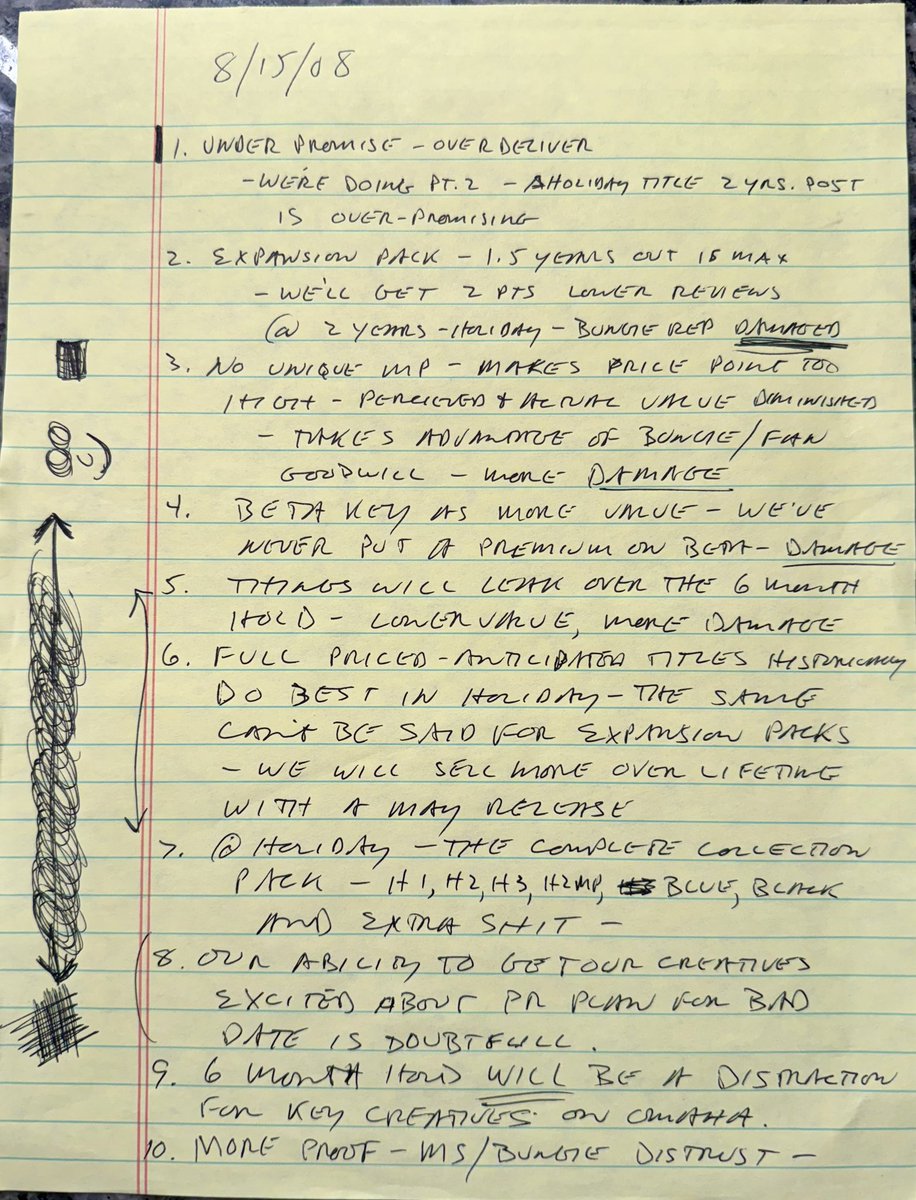 8/15/08
1. UNDER PROMISE - OVER DELIVER
- WE'RE DOING PT. 2 - A HOLIDAY TITLE 2 YRS. POST
IS OVER-PROMISING
2. EXPANSION PACK - 1.5 YEARS OUT IS MAX
- WE'LL GET 2 PTS LOWER REVIEWS
@ 2 YEARS - HOLIDAY - BUNGIE REP DAMAGED
3. NO UNIQUE MP - MAKES PRICE POINT TOO
HIGH - PERCIEVED & ACTUAL VALUE DIMINISHED
- TAKES ADVANTAGE OF BUNGIE/FAN
GOODWILL - MORE DAMAGE
4. BETA KEY AS MORE VALUE - WE'VE
NEVER PUT A PREMIUM ON BETA - DAMAGE
5. THINGS WILL LEAK OVER THE 6 MONTH
HOLD - LOWER VALUE, MORE DAMAGE
6. FULL PRICED - ANTICIPATED TITLES HISTORICALLY
DO BEST IN HOLIDAY - THE SAME
CAN'T BE SAID FOR EXPANSION PACKS
- WE WILL SELL MORE OVER LIFETIME
WITH A MAY RELEASE
7. @ HOLIDAY - THE COMPLETE COLLECTION
PACK - H1, H2, H3, H2MP, BLUE, BLACK
AND EXTRA SHIT -
8. OUR ABILITY TO GET OUR CREATIVES
EXCITED ABOUT PR PLAN FOR BAD
DATE IS DOUBTFULL.
9. 6 MONTH HOLD WILL BE A DISTRACTION
FOR KEY CREATIVES ON OMAHA.
10. MORE PROOF - MS/BUNGIE DISTRUST -